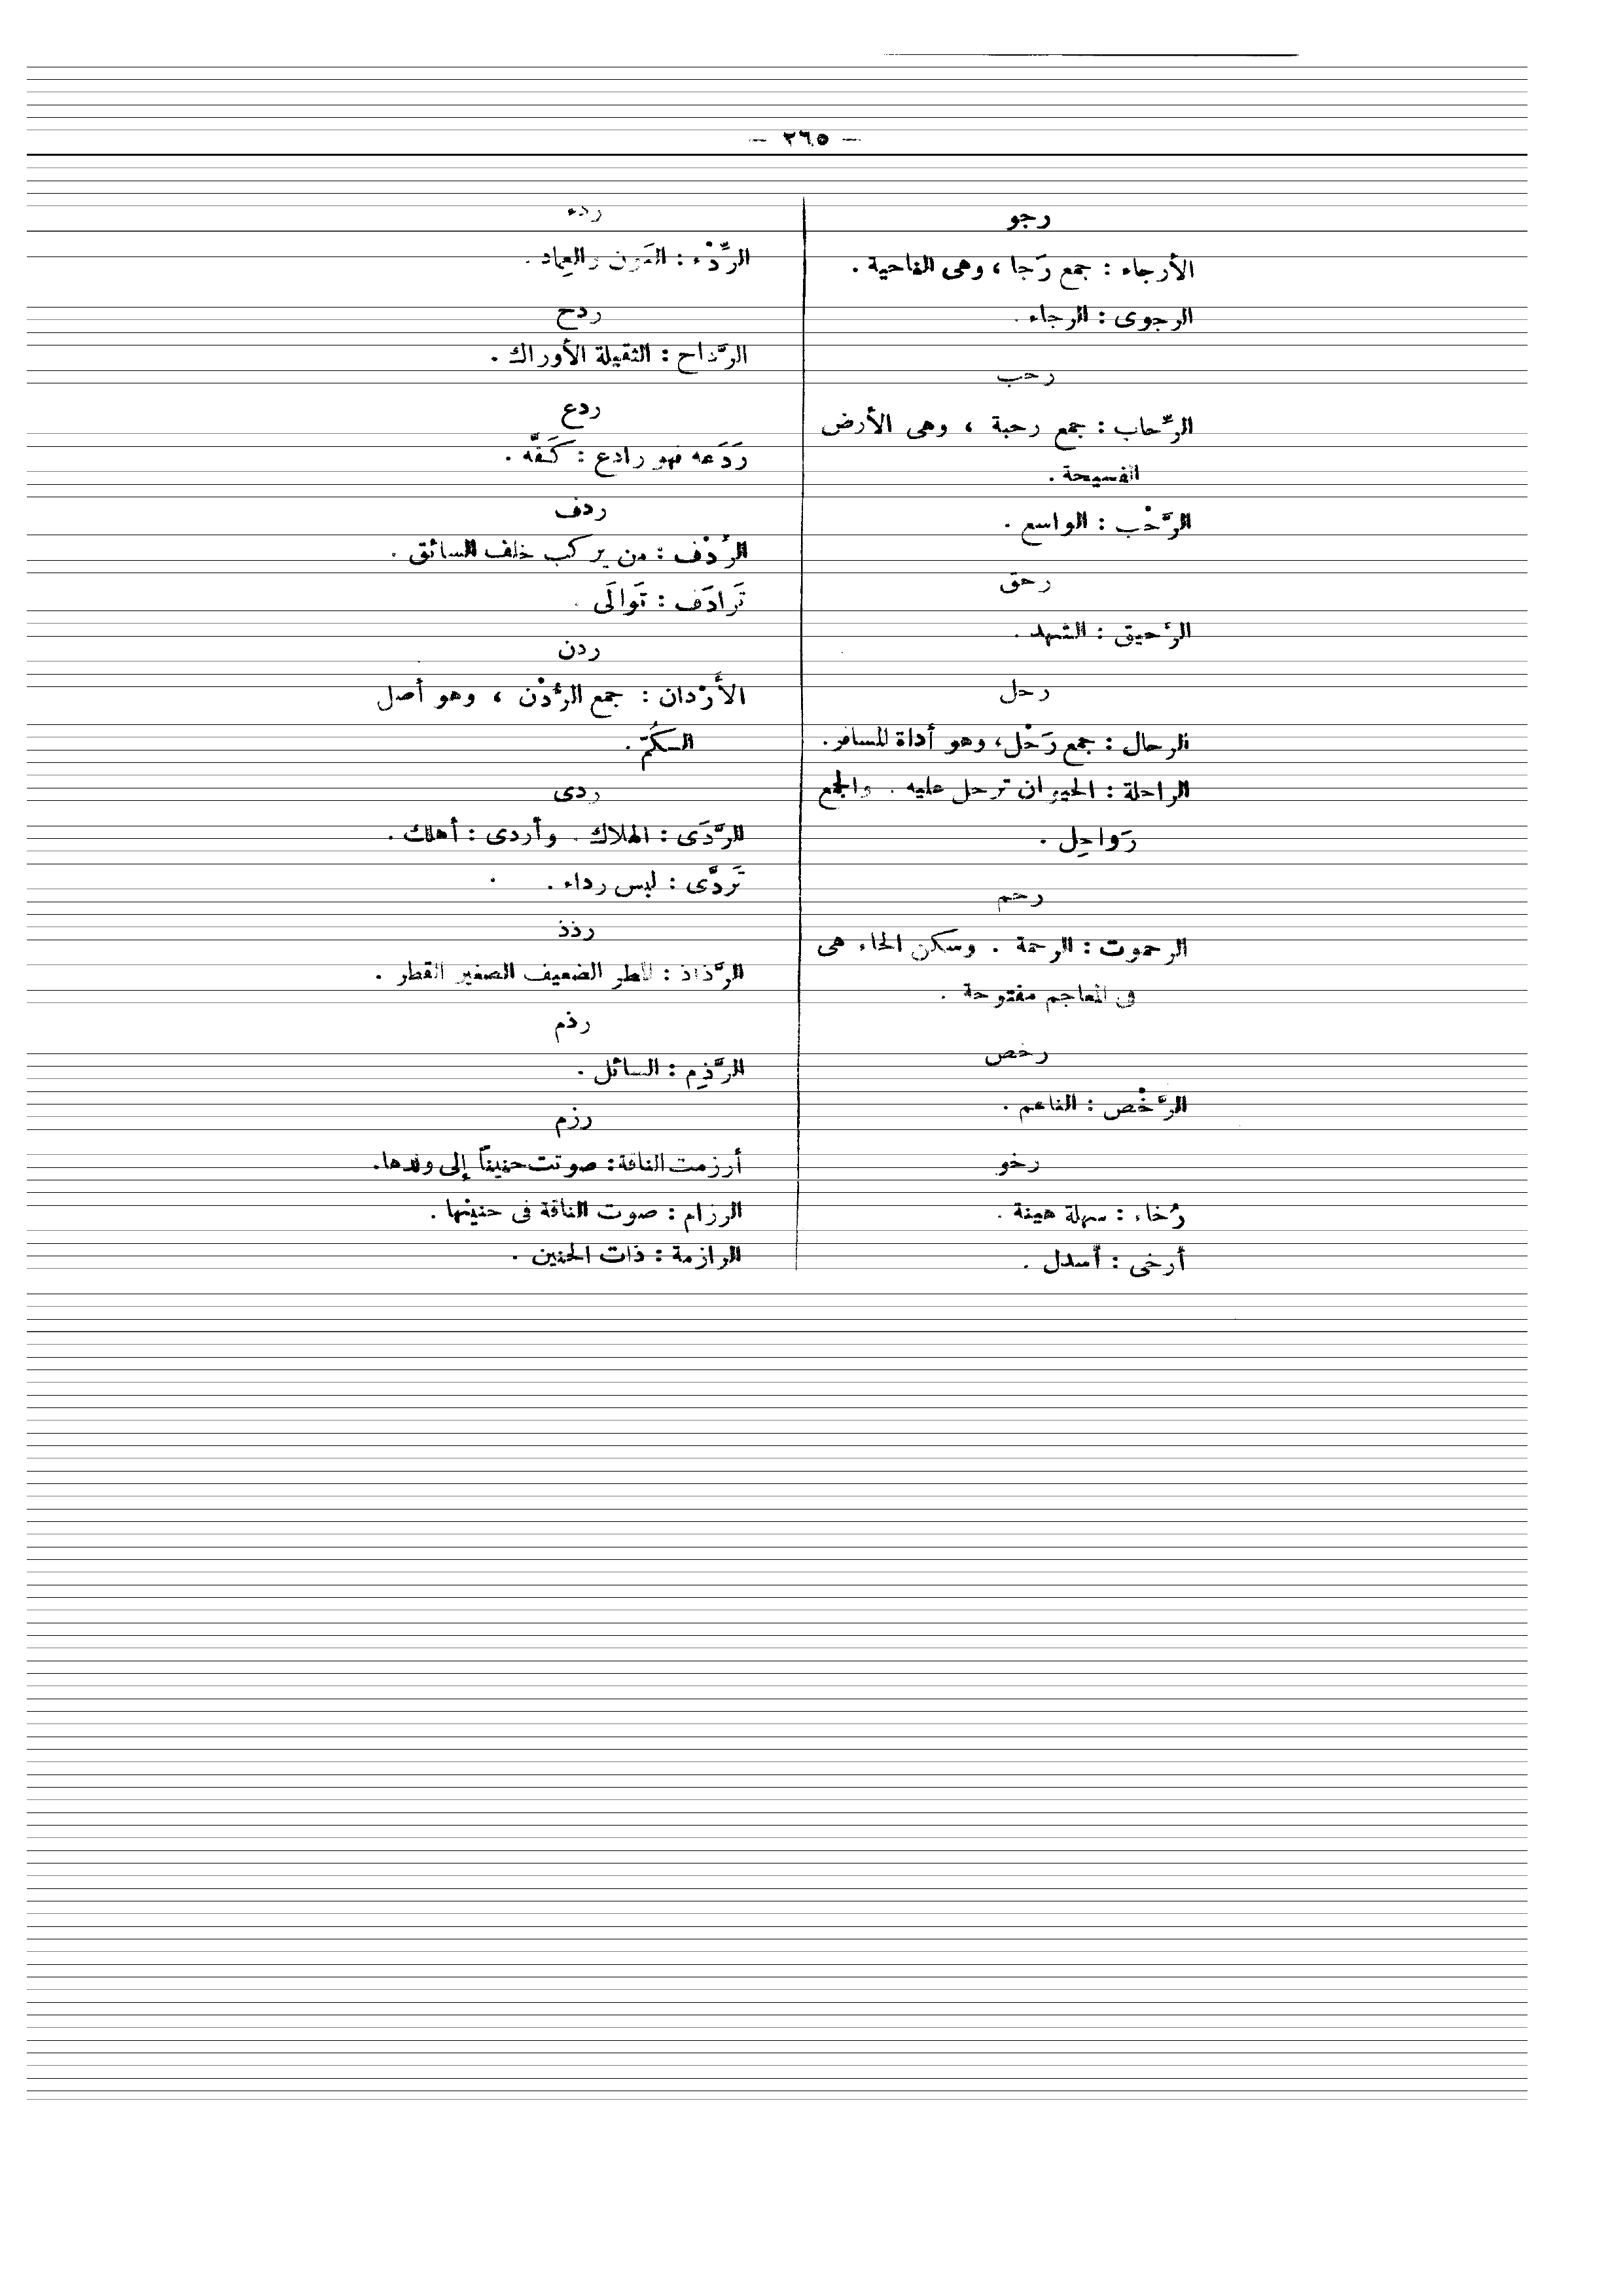 — ٢٦٥ —
رجو
الأرجاء : جمع رَجا ، وهى الناحية .
الرجوى : الرجاء .
رحب
الرِّحاب : جمع رحبة ، وهى الأرض
الفسيحة .
الرَّحْب : الواسع .
رحق
الرحيق : الشهد .
رحل
الرحال : جمع رَحْل، وهو أداة المسافر.
الراحلة : الحيوان ترحل عليه . والجمع
رَواحِل .
رحم
الرحموت : الرحمة . وسكن الحاء هى
فى المعاجم مفتوحة .
رخص
الرَّخْص : الناعم .
رخو
رُخاء : سهلة هينة .
أرخى : أسدل .
ردء
الرِّدْء : العَون والعِماد .
ردح
الرَّداح : الثقيلة الأوراك .
ردع
رَدَعه فهو رادع : كَفَّه .
ردف
الرِّدْف : من يركب خلف السائق .
تَرادَف : تَوالَى .
ردن
الأَرْدان : جمع الرُّدْن ، وهو أصل
الـكُمّ .
ردى
الرَّدَى : الهلاك . وأردى : أهلك .
تَردَّى : لبس رداء .
رذذ
الرَّذاذ : المطر الضعيف الصغير القطر .
رذم
الرَّذِم : السائل .
رزم
أرزمت الناقة : صوتت حنيناً إلى ولدها.
الرزام : صوت الناقة فى حنينها .
الرازمة : ذات الحنين .